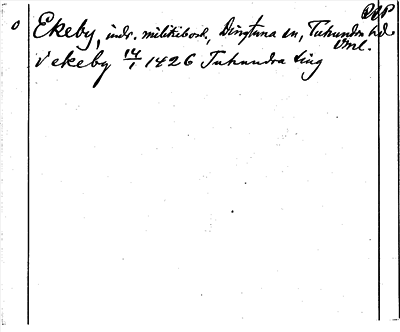 DRP
o Ekeby, indr. militiebost., Dingtuna sn, Tuhundra hd
Vml.
i ekeby 14/1 1426 Tuhundra ting